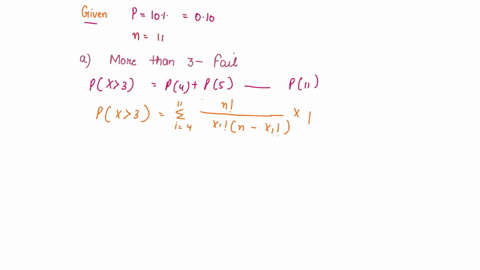 Given P = 10% = 0.10
n = 11
a) More than 3 - fail
P(X>3) = P(4) + P(5) —— P(11)
P(X>3) = 11 Σ i=4 n! / x₁!(n - x₁!) × 1